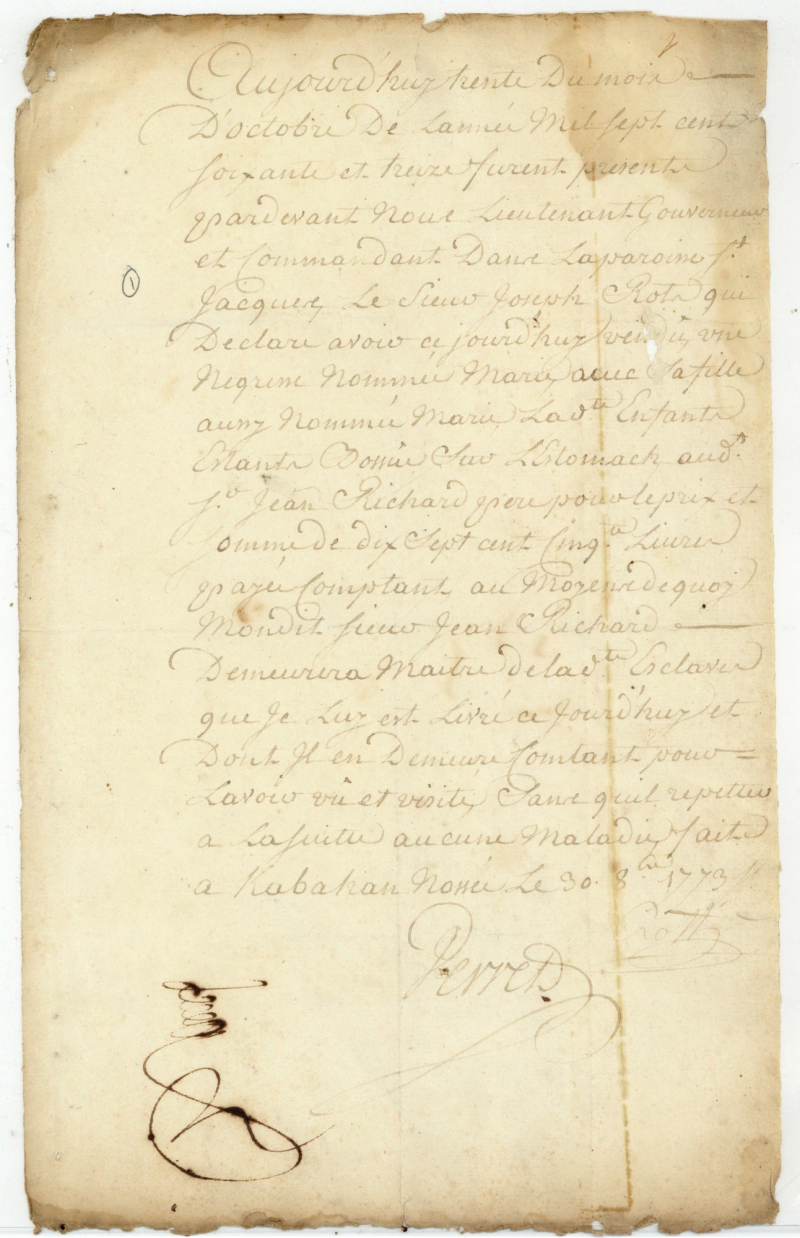 Aujourd'huy trente Du mois
D'octobre De Lannée Mil sept cent
soixante et treize furent presents
pardevant Nous Lieutenant Gouverneur
et Commandant Dans Laparoisse St
Jacques, Le Sieur Joseph Rots qui
Declare avoir ce jourd'huy vendu, une
Negresse Nommée Marie, avec sa fille
aussy Nommée Marie, Ladte Enfants
Estants Sur L'Estomach audt
Sr Jean Richard pere pour le prix et
somme de dix Sept cent Cinqte Livres
payée Comptant au Moyens de quoy
Mondit sieur Jean Richard
Demeurera Maitre deladte Esclaves
que Je Luy est Livré ce Jourd'huy et
Dont Jl en Demeure Contant pour =
Lavoir vu et visité, Sans quil repetter
a Lasuitte aucune Maladie, fait
a Kabahan Nossée Le 30. 8bre 1773
Rotts
Perret
①